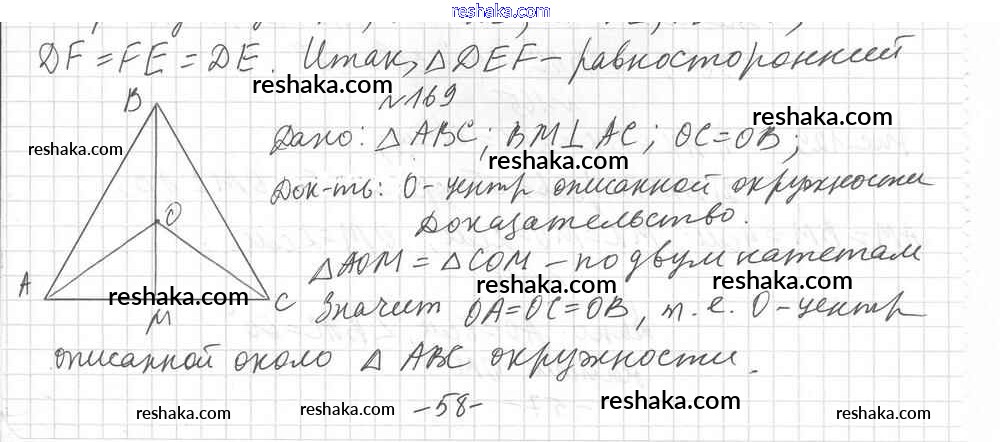 reshaka.com
DF = FE = DE. Итак, △DEF – равносторонний
reshaka.com
№169
B
reshaka.com
Дано: △ABC; BM⊥AC; OC=OB;
reshaka.com
reshaka.com
Док-ть: O – центр описанной окружности
O
Доказательство.
reshaka.com
△AOM = △COM – по двум катетам
A
reshaka.com
reshaka.com
reshaka.com
M
C
Значит OA=OC=OB, т.е. O – центр
описанной около △ ABC окружности.
-58-
reshaka.com
reshaka.com
reshaka.com
reshaka.com